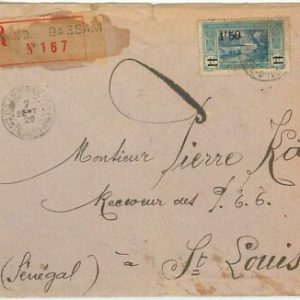 GRAND BASSAM
R N° 167
1F50
7
SEPT
29
Monsieur Pierre Ka
Receveur des P.T.T.
(Sénégal) à St Louis